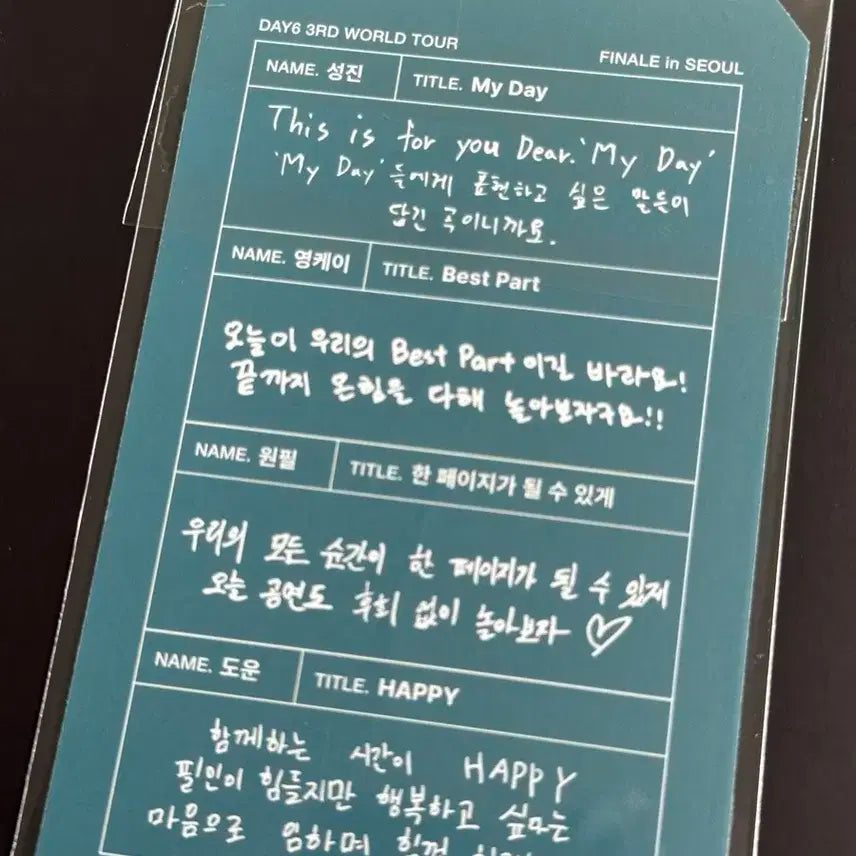 DAY6 3RD WORLD TOUR
FINALE in SEOUL
NAME. 성진
TITLE. My Day
This is for you Dear.'My Day'
'My Day'들에게 표현하고 싶은 말들이
담긴 곡이니까요.
NAME. 영케이
TITLE. Best Part
오늘이 우리의 Best Part 이길 바라요!
끝까지 온힘을 다해 놀아보자구요!!
NAME. 원필
TITLE. 한 페이지가 될 수 있게
우리의 모든 순간이 한 페이지가 될 수 있게
오늘 공연도 후회 없이 놀아보자 ♡
NAME. 도운
TITLE. HAPPY
함께하는 시간이 HAPPY
힘들지만 행복하고 싶다는
마음으로 임하며 함께